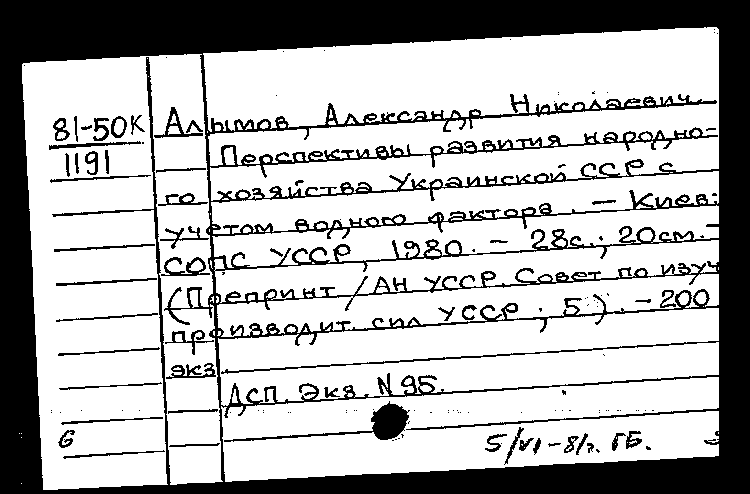 81-50К
1191
Алымов, Александр Николаевич.
Перспективы развития народно-
го хозяйства Украинской ССР с
учетом водного фактора. — Киев:
СОПС УССР, 1980. — 28с.; 20см. —
(Препринт / АН УССР. Совет по изуч
производит. сил УССР; 5). — 200
экз.
ДСП. Экз. N 95.
6
5/VI-81г. ГБ.